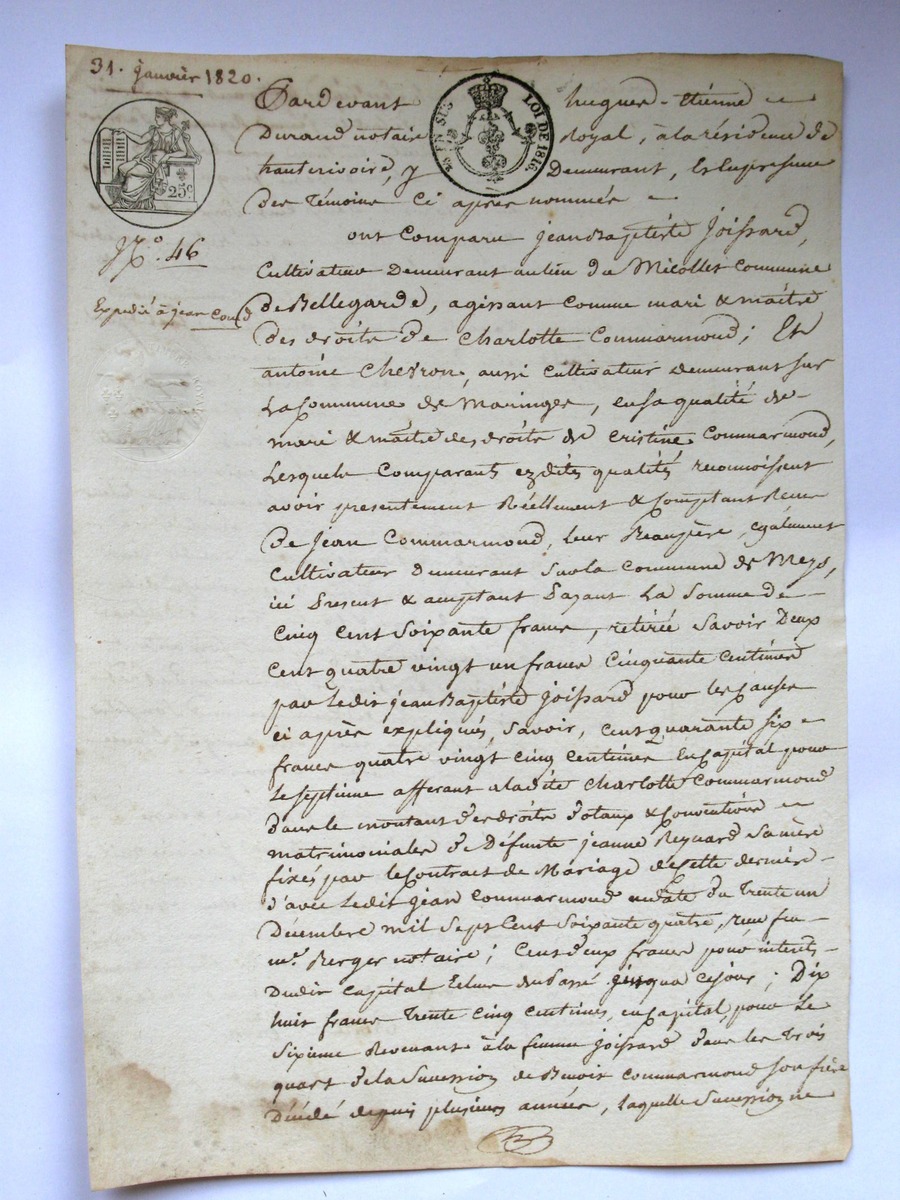 31. janvier 1820.
Pardevant hugues-Etienne
Durand notaire Royal, à la résidence de
hauterivoire, y Demeurant, En la presence
Des Témoins Ci après nommés
EN SUS LOI DE 1816.
25c.
N.º 46
Expedié à jean Com.d
ont Comparu jean Baptiste Joissard,
Cultivateur Demeurant au lieu du Micollet Commune
de Bellegarde, agissant comme mari & maître
des droits de Charlotte Commarmond; Et
antoine Chevron, aussi cultivateur demeurant sur
La Commune de Maringes, en sa qualité de
mari & maître des droits de Cristine Commarmond,
Lesquels Comparants ezdites qualités reconnoissent
avoir presentement Réellement & Comptant Reçu
De Jean Commarmond, leur Beaupère, également
Cultivateur demeurant sur la Commune de Meys,
ici Present & acceptant Payant La Somme de
Cinq Cent Soixante francs, retirée Savoir Deux
Cent quatre vingt un francs Cinquante Centimes
par Ledit jean Baptiste Joissard pour les Causes
ci après expliqués, Savoir, Cent quarante six
francs quatre vingt cinq Centimes En Capital pour
Le Septieme afferant a ladite Charlotte Commarmond
dans le montant des droits dotaux & Conventions
matrimoniales de Défunte jeanne Reynard Sa mère
fixés par le Contrat de Mariage de cette dernière
d'avec Ledit jean Commarmond en date du Trente un
Décembre mil Sept Cent Soixante quatre, reçu feu
me. Berger notaire; Cent deux francs pour interets
Dudit Capital Echus du Passé jusqua Ce jour; Dix
huit francs Trente Cinq Centimes, en Capital, pour Le
Sixieme Revenant à la femme Joissard dans les Trois
quart de la Succession de Benoit Commarmond Son frère
Décédé depuis plusieurs années, laquelle Succession ne